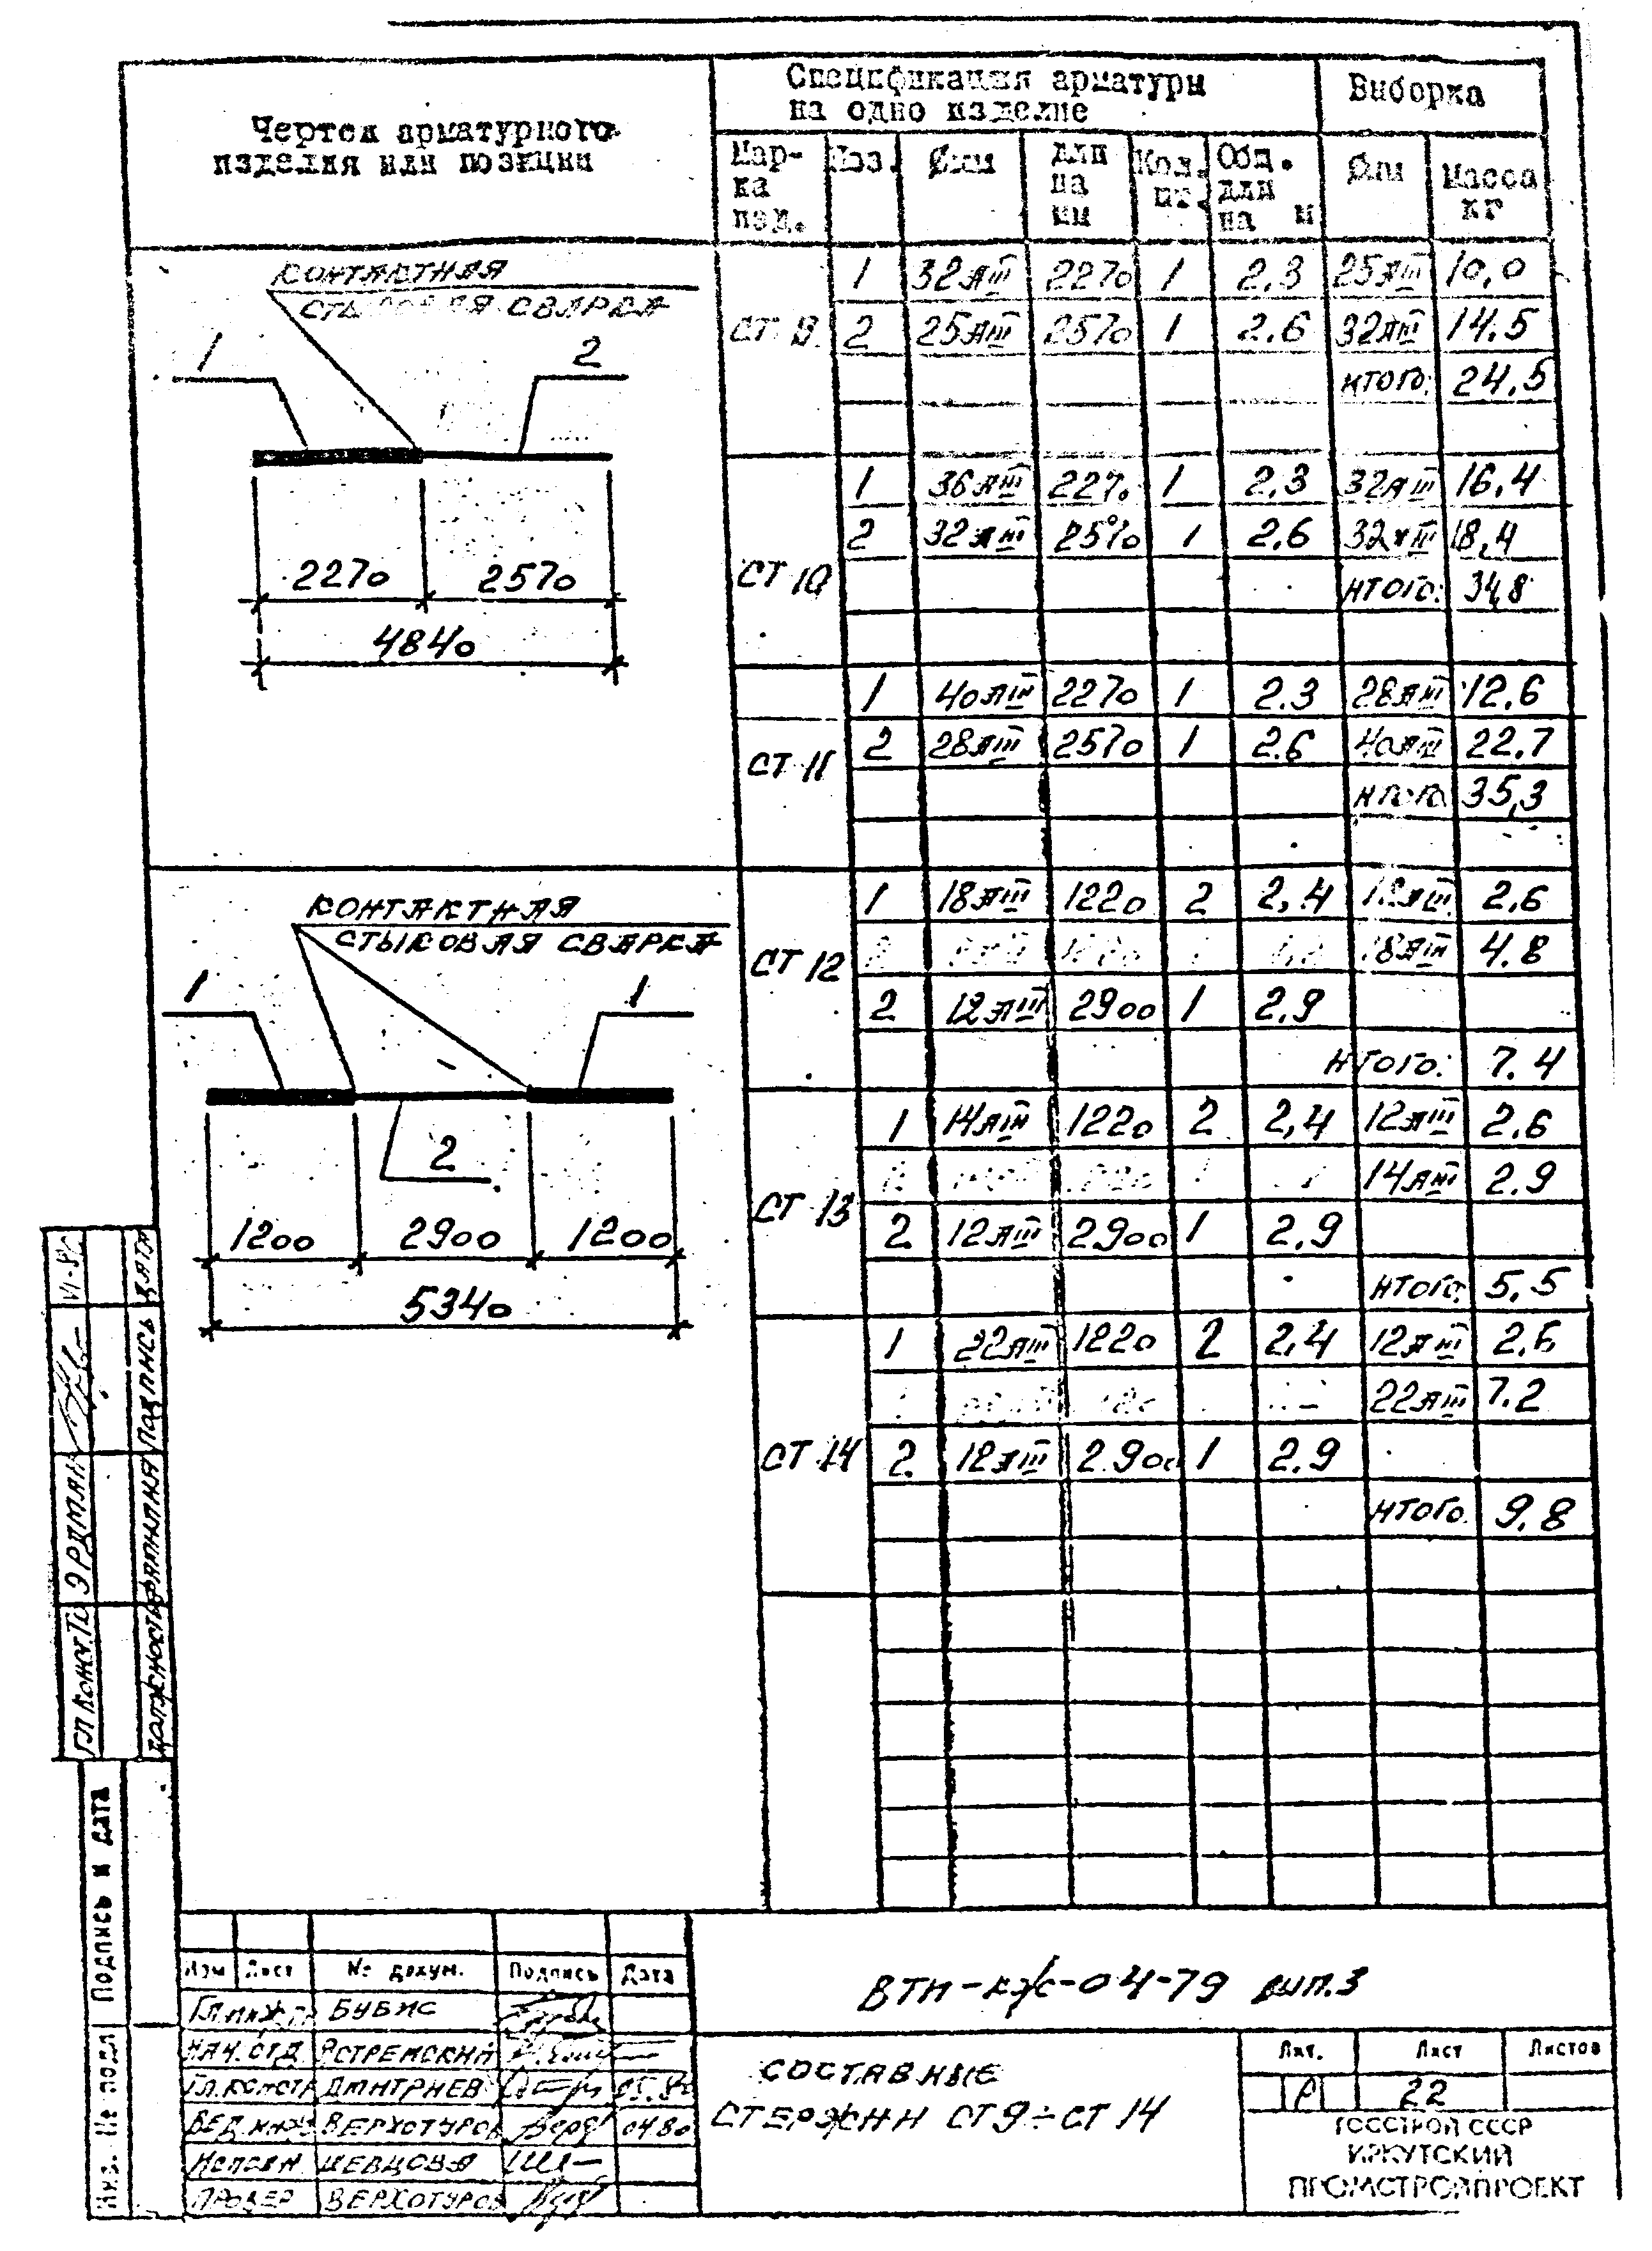 Чертеж арматурного
изделия или позиции
Спецификация арматуры
на одно изделие
Выборка
Мар-
ка
изд.
Поз.
Øмм
дли
на
мм
Кол.
шт.
Общ.
дли
на м
Ømm
Масса
кг
КОНТАКТНАЯ
СТЫКОВАЯ СВАРКА
1
2
2270
2570
4840
СТ 9
1 32АIII 2270 1 2.3 25АIII 10,0
2 25АIII 2570 1 2.6 32АIII 14.5
ИТОГО: 24,5
СТ 10
1 36АIII 2270 1 2.3 32АIII 16.4
2 32АIII 2570 1 2.6 32АIII 18,4
ИТОГО: 34,8
СТ 11
1 40АIII 2270 1 2.3 28АIII 12.6
2 28АIII 2570 1 2.6 40АIII 22.7
ИТОГО 35,3
КОНТАКТНАЯ
СТЫКОВАЯ СВАРКА
1
1
2
1200
2900
1200
5340
СТ 12
1 18АIII 1220 2 2,4 12АIII 2.6
18АIII 4.8
2 12АIII 2900 1 2.9
ИТОГО: 7.4
СТ 13
1 14АIII 1220 2 2,4 12АIII 2.6
14АIII 2.9
2 12АIII 2900 1 2.9
ИТОГО: 5,5
СТ 14
1 22АIII 1220 2 2,4 12АIII 2.6
22АIII 7.2
2 12АIII 2900 1 2.9
ИТОГО 9,8
ДАТА
Подпись
ФАМИЛИЯ
Должность
ЭРДМАН
Подпись и дата
Инв. № подл
Изм Лист № докум. Подпись Дата
Гл.инж.п БУБИС
НАЧ. ОТД ЯСТРЕМСКИЙ
Гл.констр ДМИТРИЕВ
ВЕД.инж ВЕРХОТУРОВ 04.80
Исполн. ШЕВЦОВА
ПРОВЕР ВЕРХОТУРОВ
ВТИ-КЖ-04-79 вып.3
СОСТАВНЫЕ
СТЕРЖНИ СТ 9÷СТ 14
Лит. Лист Листов
Р 22
ГОССТРОЙ СССР
ИРКУТСКИЙ
ПРОМСТРОЙПРОЕКТ